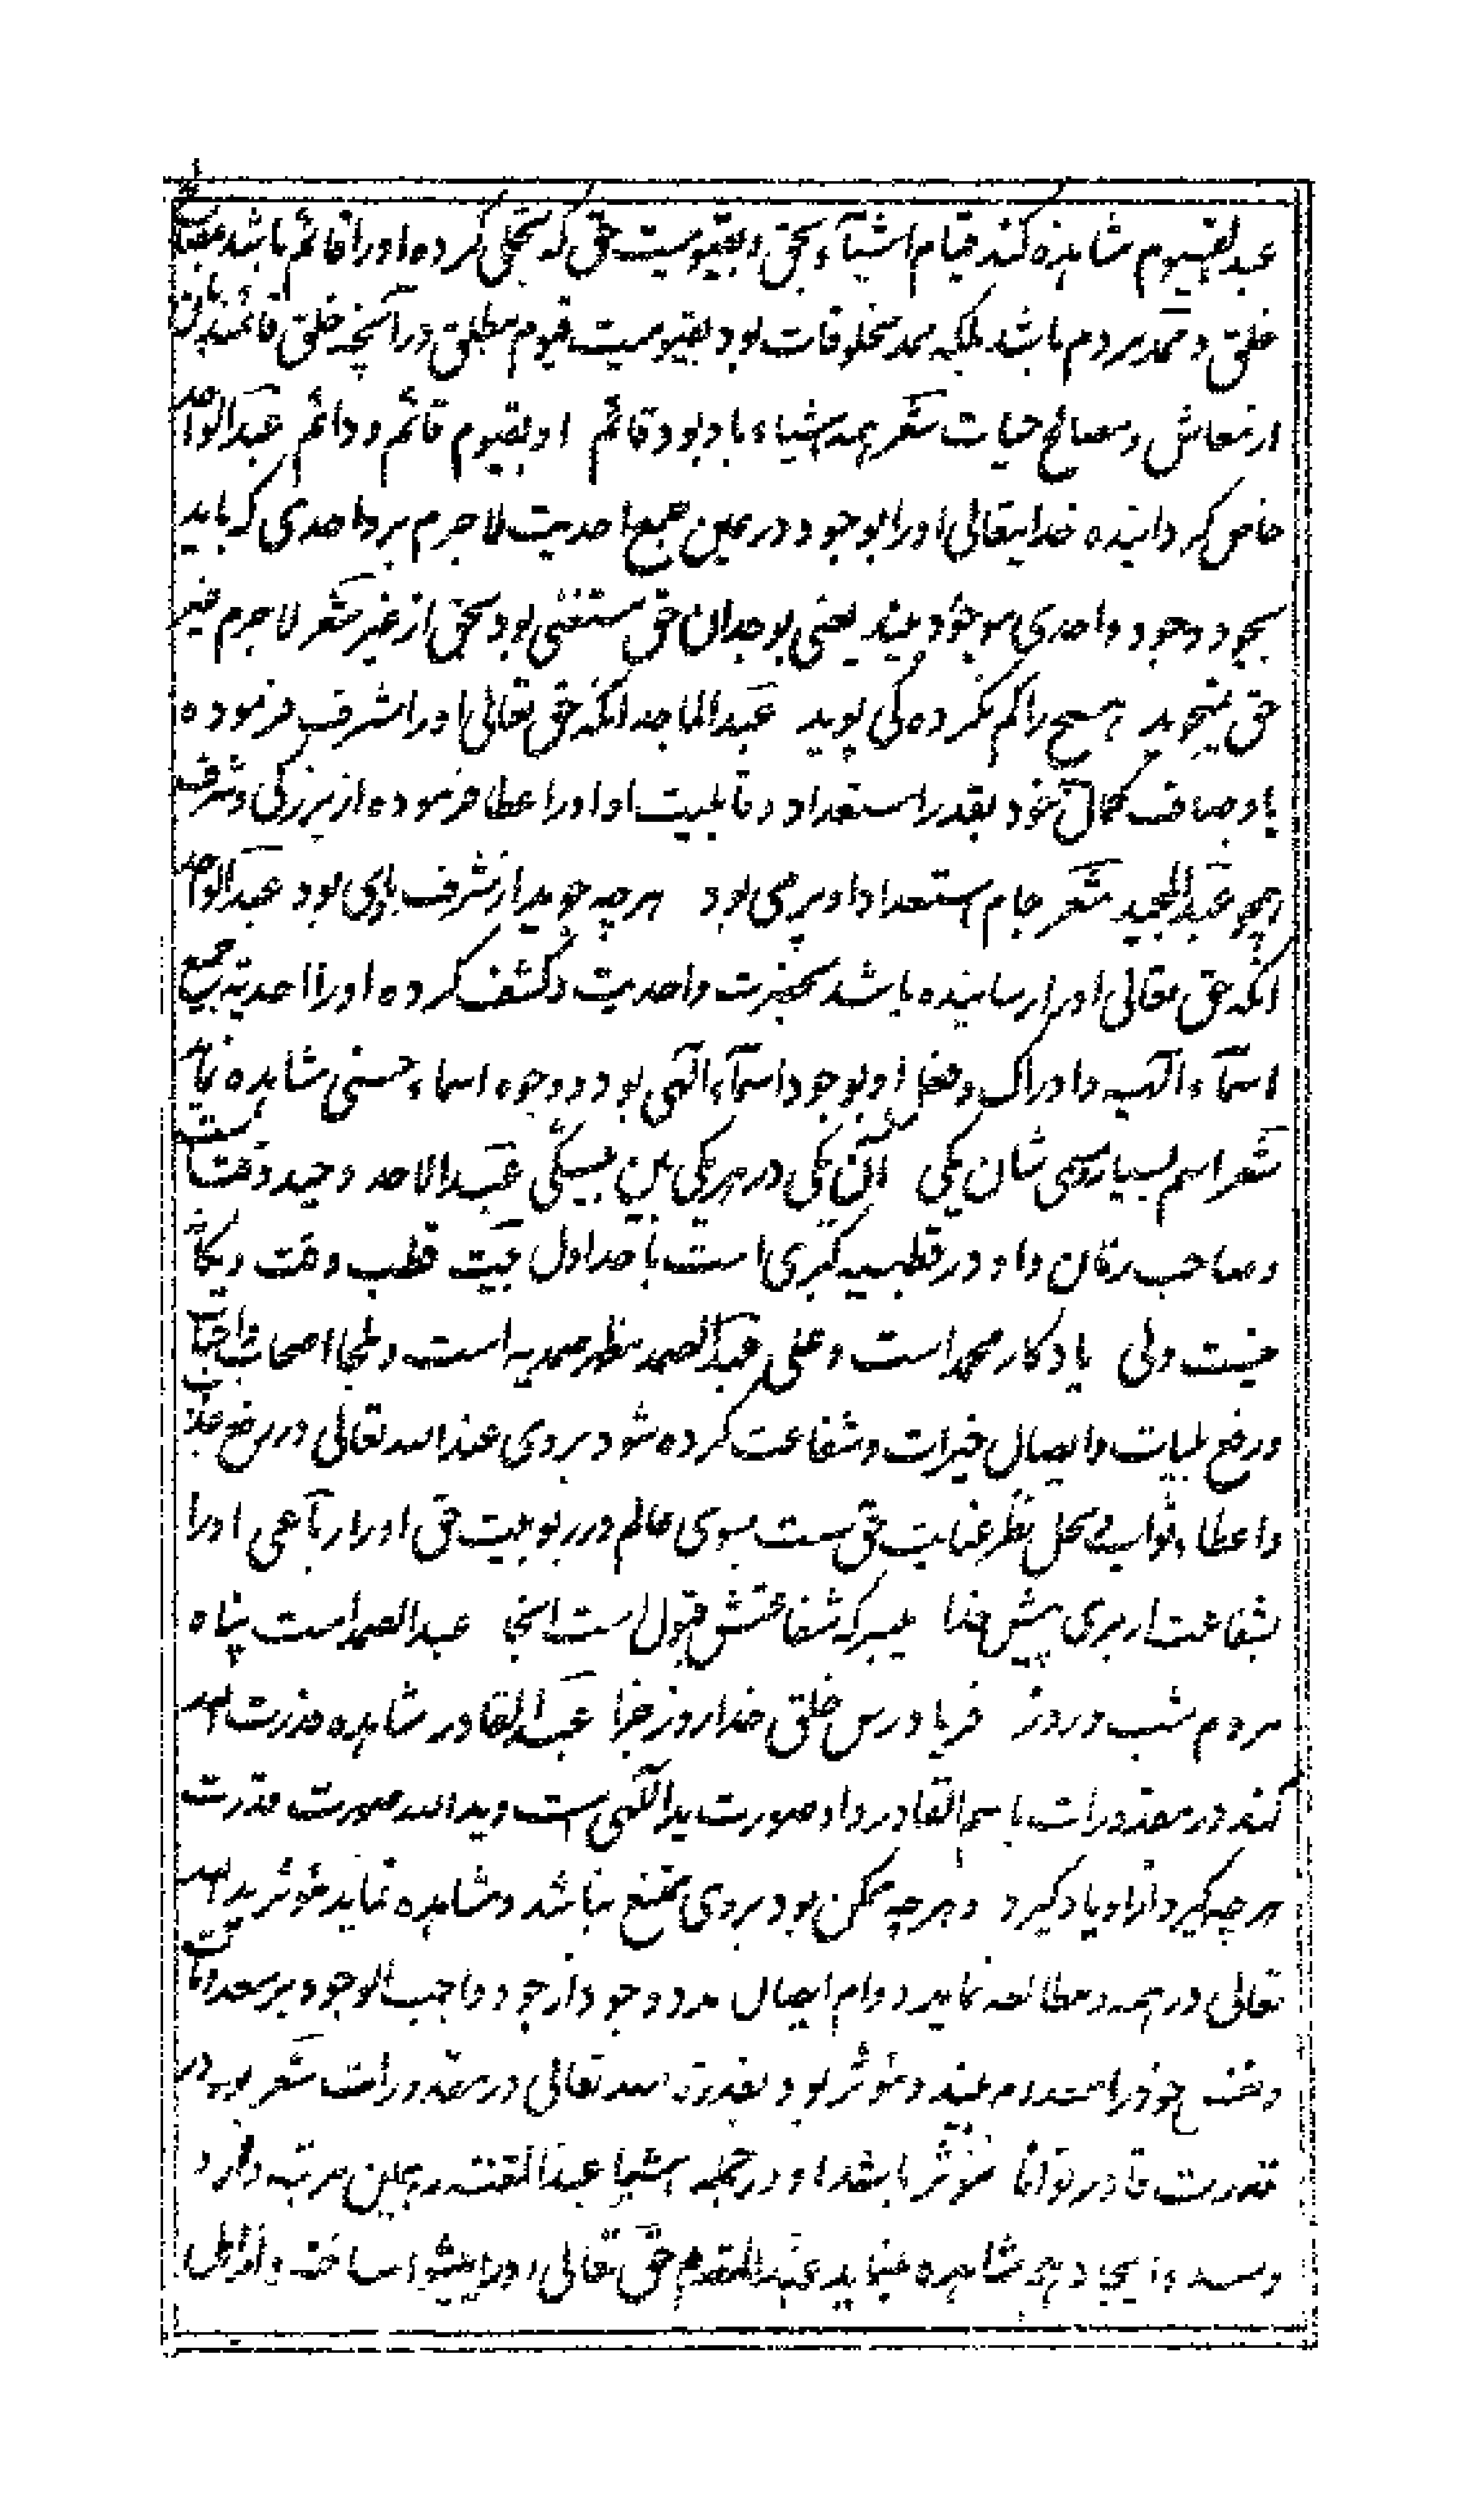 عبد القیوم مشاهده کند قیام اشیآء بحق و بقیومیت حق که تجلی کرده او را قائم باشد بمصالح
خلق و ممد مردم باشد بلکه ممد مخلوقات بود بقیومیت قیوم مطلق در آنچه خلق قائمند بان
از معاش و مصالح حیات شعر همه اشیاء باو بود قائم او بقیوم قائم و دائم عبد الواجد
خاص گردانیده خدایتعالی او را بوجود در عین جمع احدیت لا جرم بر واحدی که باید
بجود وجود واحدی موجود بیند یعنی بوجدان حق مستغنی بود بحق از غیر شعر لا جرم غیر
حق نمیجوید هیچ را گم نکرده کی پوید عبد الماجد آنکه حق تعالی او را شرف فرموده
باوصاف کمال خود بقدر استعداد و قابلیت او او را عطا فرموده از بزرگی و شرف
همچو عبد المجید شعر جام استعداد او پر می بود هر چه جوید از شرف باوی بود عبد الواحد
آنکه حق تعالی او را رسانیده باشد بحضرت واحدیت و کشف کرده او را احدیة جمیع
اسمآء الهیه و ادراک و فعل او بوجود اسمآء الهی بود و وجوه اسماء حسنی مشاهده نماید
شعر اسم بسیار و مسمی شان یکی آن یکی در هر یکی بین بیشکی عبد الاحد وحید وقت است
و صاحب زمان و او در قطبیه کبری است باحد اول بیت قطب وقت و یگانه
نیست ولی یادگار محمد است و علی عبد الصمد مظهر صمدیه است و ملجا اصحاب حاجات
و رفع بلیات و ایصال خیرات و شفاعت کرده شود بروی عند الله تعالی در رفع عذاب
و اعطاء ثواب وی محل نظر عنایت حق ست بسوی عالم در ربوبیت حق او را رباعی او را
بشفاعت ار بری پیش خدا میبر که شفاعتش قبول است انجا عبد الصمد است پناه
مردم شب و روز فریاد رس خلق خدا روز جزا عبد القادر مشاهده قدرت الله
کند در مقدورات باسم القادر و او صورت ید الهی ست و ید الله صورت قدرت
هر چه گیرد از او یاد گیرد و هر چه ممکن بود بروی ممتنع نباشد و مشاهده نماید مؤثرید الله
تعالی در همه و مطالعه نماید دوام ایصال مدد وجود از جود واجب الوجود بر معدومات
خود را بیند و مؤثر بود بقدرت الله تعالی در مقدورات شعر بود در
قدرت قادر توانا مؤثر باشد او در جمله اشیا عبد المقتدر همین مرتبه دارد
ایجاد همه مشاهده مینماید عبد المقدم حق تعالی او را پیشوا ساخته و اوایل